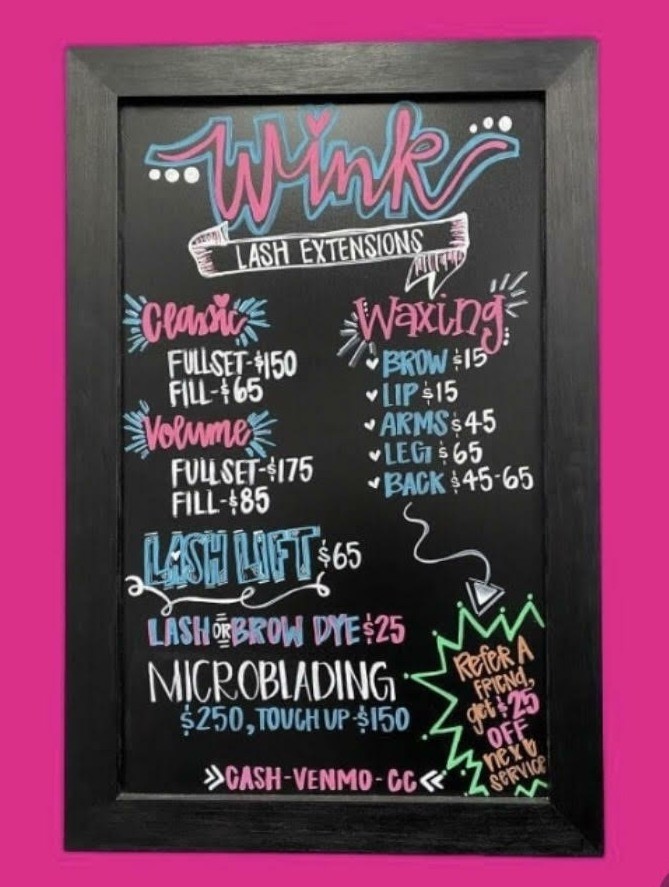 Wink
LASH EXTENSIONS
Classic
FULLSET-$150
FILL-$65
Volume
FULLSET-$175
FILL-$85
LASH LIFT $65
LASH OR BROW DYE $25
MICROBLADING
$250, TOUCH UP-$150
Waxing
BROW $15
LIP $15
ARMS $45
LEG $65
BACK $45-65
REFER A
FRIEND,
get $25
OFF
next
SERVICE
CASH-VENMO-CC